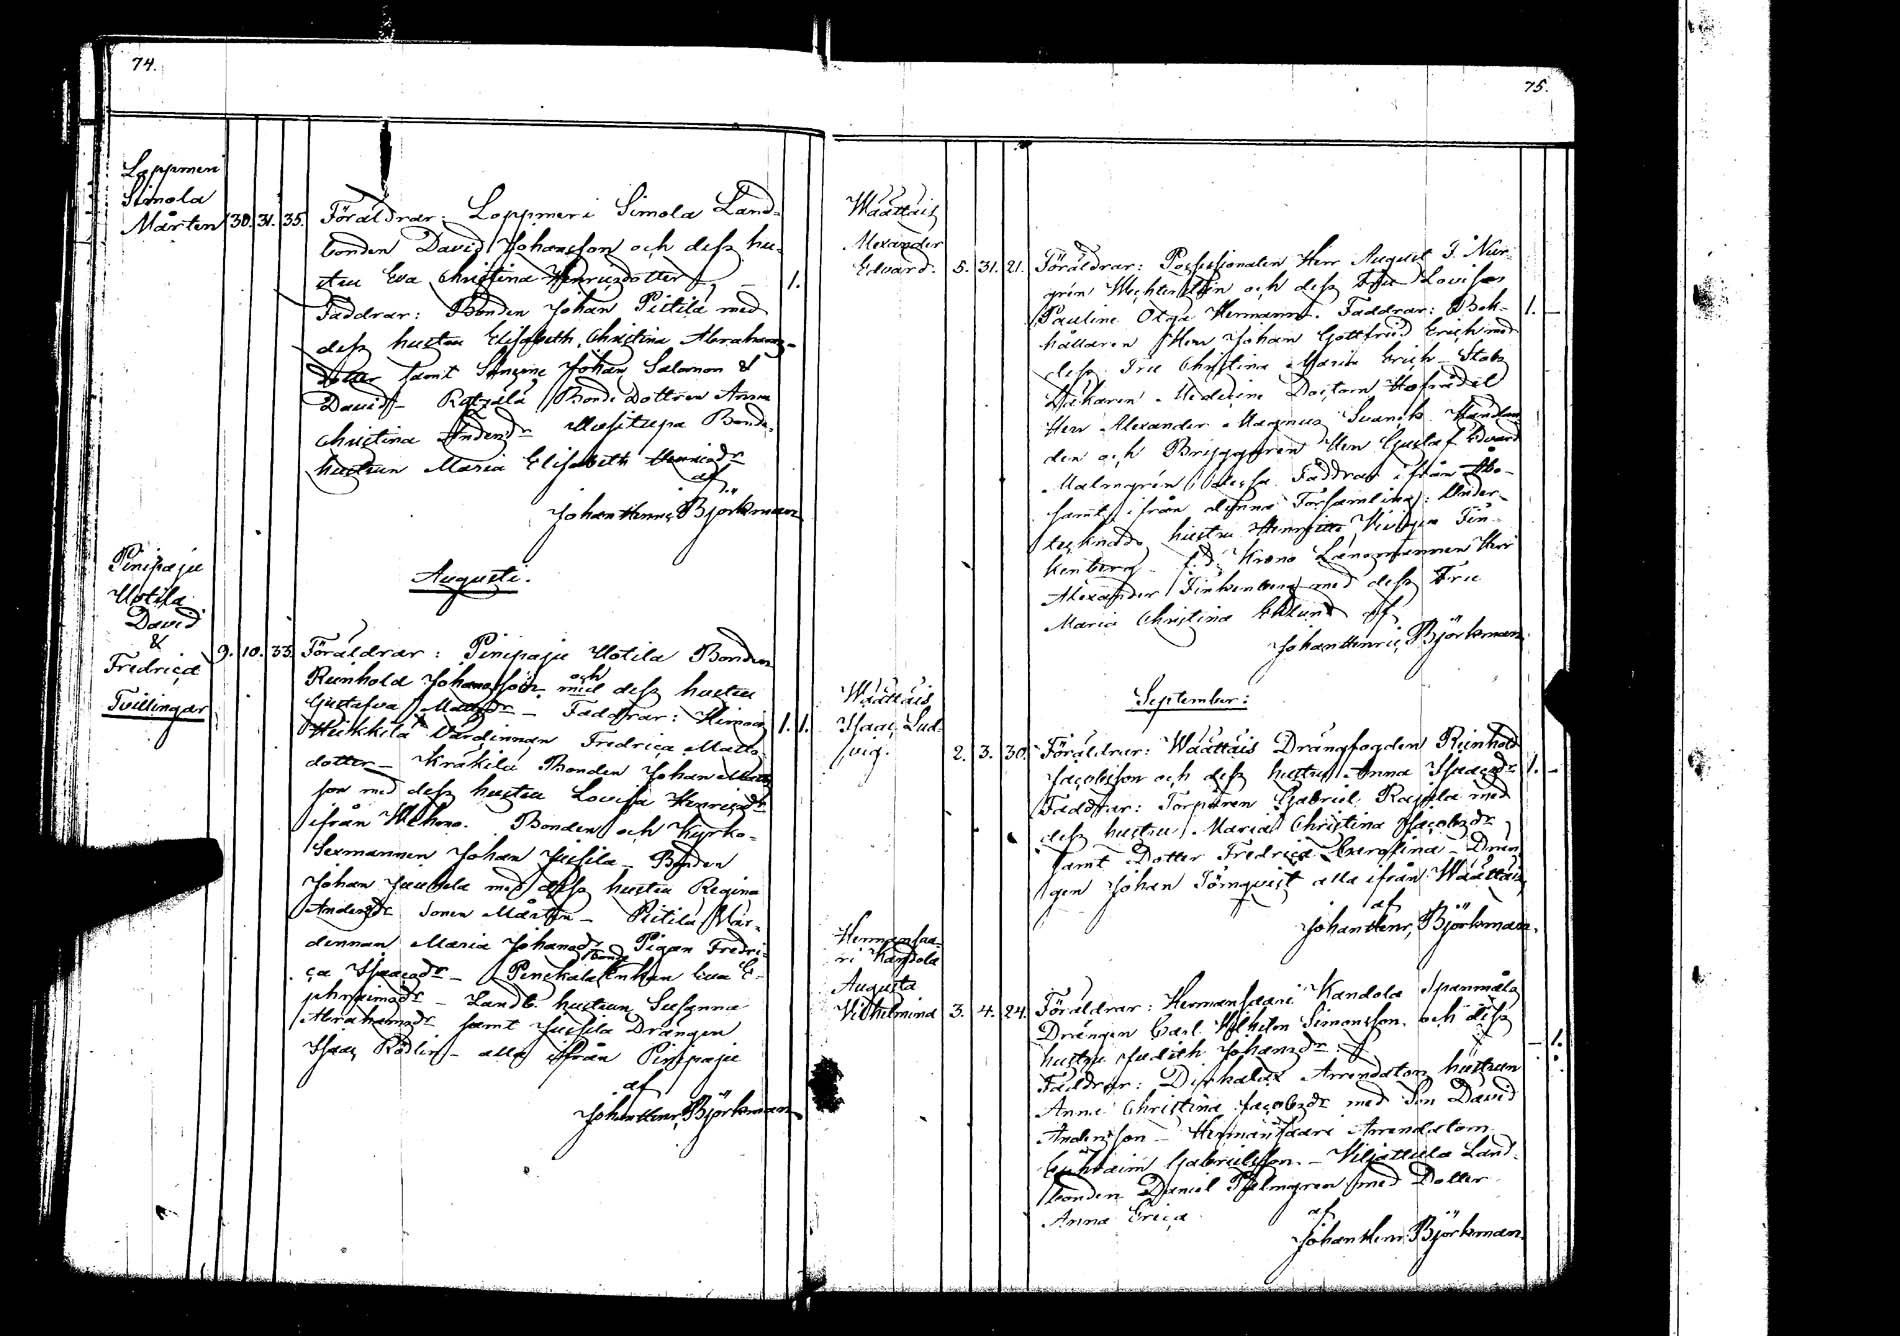 74.
Loppmeri
Simola
Mårten 30. 31. 35. Föräldrar: Loppmeri Simola Land-
bonden David Johansson och dess hu-
stru Eva Christina Henricsdotter, — 1.
Faddrar: Bonden Johan Pietilä med
dess hustru Elisabeth Christina Abrahams-
dotter samt Johan Salomon &
David — Bonde Dottren Anna
Christina Andersdr Bonde-
hustrun Maria Elisabeth Henricsdr
af
Johan Henric Björkman
Augusti.
Pinipaju
Uotila
David
&
Fredrica
Tvillingar
9. 10. 33. Föräldrar: Pinipaju Uotila Bonden
Reinhold Johansson och med dess hustru
Gustafva Mattsdr — Faddrar: 1. 1.
Heikkilä Värdinnan Fredrica Matts-
dotter — Kräkilä Bonden Johan Matts
son med dess hustru Lovisa Henricsdr
ifrån Wehmo. Bonden och Kyrko-
Sexmannen Johan Jussila — Bonden
Johan Jaakola med dess hustru Regina
Andersdr Sonen Mårten — Pietilä Vär-
dinnan Maria Johansdr Pigan Fredri-
ca Isaacsdr — Bonde Enkan Eva E-
phraimsdr — Landb. hustrun Susanna
Abrahamsdr samt Jussila Drängen
Isaac Rödlin — alla ifrån Pinipaju
af
Johan Henr. Björkman
75.
Wäättäis
Alexander
Edvard. 5. 31. 21. Föräldrar: Possessionaten Herr August J. Nur-
grén Wechterstein och dess Fru Lovisa
Pauline Olga Hermanni. Faddrar: Bok- 1. —
hållaren Herr Johan Gottfried Erich med
dess Fru Christina Maria Erich — Stabs
Läkaren Medicine Doctorn Hofrådet
Herr Alexander Magnus Svansk Handlan
den och Bryggaren Herr Gustaf Edvard
Malmgrén, dessa Faddrar ifrån Åbo —
samt ifrån denna Församling: Under-
tecknads hustru Henriette Finc-
kenberg — f.d. Krono Länsmannen Herr
Alexander Finkenberg med dess Fru
Maria Christina Eklund af
Johan Henric Björkman
September:
Wäättäis
Isaac Lud-
vig. 2. 3. 30. Föräldrar: Wäättäis Drängfogden Reinhold
Jacobsson och dess hustru Anna Isaacsdr 1. —
Faddrar: Torparen Gabriel med
dess hustru Maria Christina Jacobsdr
samt Dotter Fredrica Carolina — Drän
gen Johan Törnqvist alla ifrån Wäättäis
af
Johan Henr. Björkman.
Hermansaa-
ri Kandola
Augusta
Vilhelmina 3. 4. 24. Föräldrar: Hermansaari Kandola Spannmåls
Drängen Carl Wilhelm Simonsson och dess
hustru Judith Johansdr — 1.
Faddrar: Arrendators hustrun
Anna Christina Jacobsdr med Son David
Andersson — Hermansaari Arrendatorn
Ephraim Gabrielsson. — Viljattula Land-
bonden Daniel Palmgren med Dotter
Anna Erica
af
Johan Henr. Björkman.